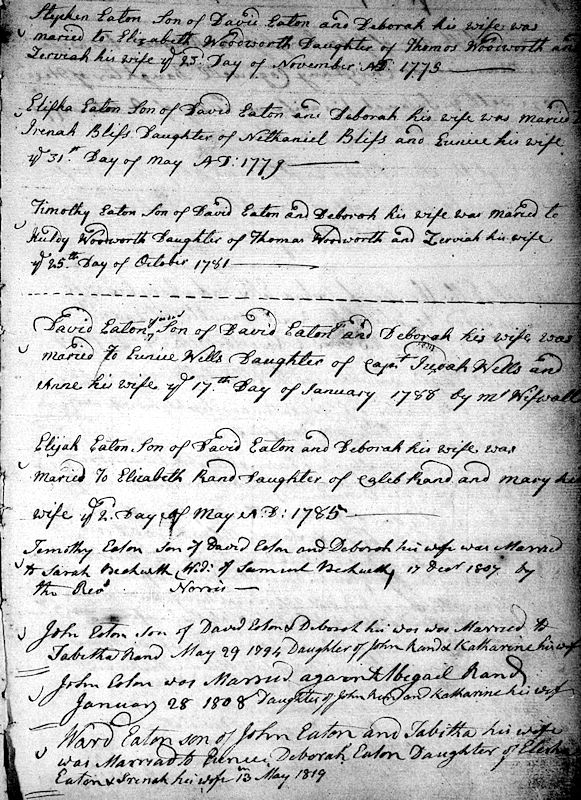 Stephen Eaton Son of David Eaton and Deborah his wife was
maried to Elizabeth Woodworth Daughter of Thomas Woodworth and
Zerviah his wife ye 23d Day of November AD: 1773
Elisha Eaton Son of David Eaton and Deborah his wife was maried
Irenah Bliss Daughter of Nathaniel Bliss and Eunice his wife
ye 31st Day of may AD: 1779
Timothy Eaton Son of David Eaton and Deborah his wife was maried to
Huldy Woodworth Daughter of Thomas Woodworth and Zerviah his wife
ye 25th Day of October 1781
David Eaton Son of David Eaton and Deborah his wife was
maried To Eunice Wells Daughter of capt Judah Wells and
Anne his wife ye 17th Day of January 1788 by mr Wiswall
Elijah Eaton Son of David Eaton and Deborah his wife was
maried To Elizabeth Rand Daughter of caleb Rand and mary his
wife ye 2 Day of May AD: 1785
Timothy Eaton Son of David Eaton and Deborah his wife was Married
to Sarah Beckwith Wid. of Samuel Beckwith 17 Decr 1807 by
the Revd Norris
John Eaton son of David Eaton & Deborah his was was Married to
Tabitha Rand May 29 1794 Daughter of John Rand & Katharine his wife
John Eaton was Married again to Abegail Rand
January 28 1808 Daughter of John Rand and Katharine his wife
Ward Eaton son of John Eaton and Tabitha his wife
was Married to Eunice Deborah Eaton Daughter of Elisha
Eaton & Irenah his wife 13 May 1819